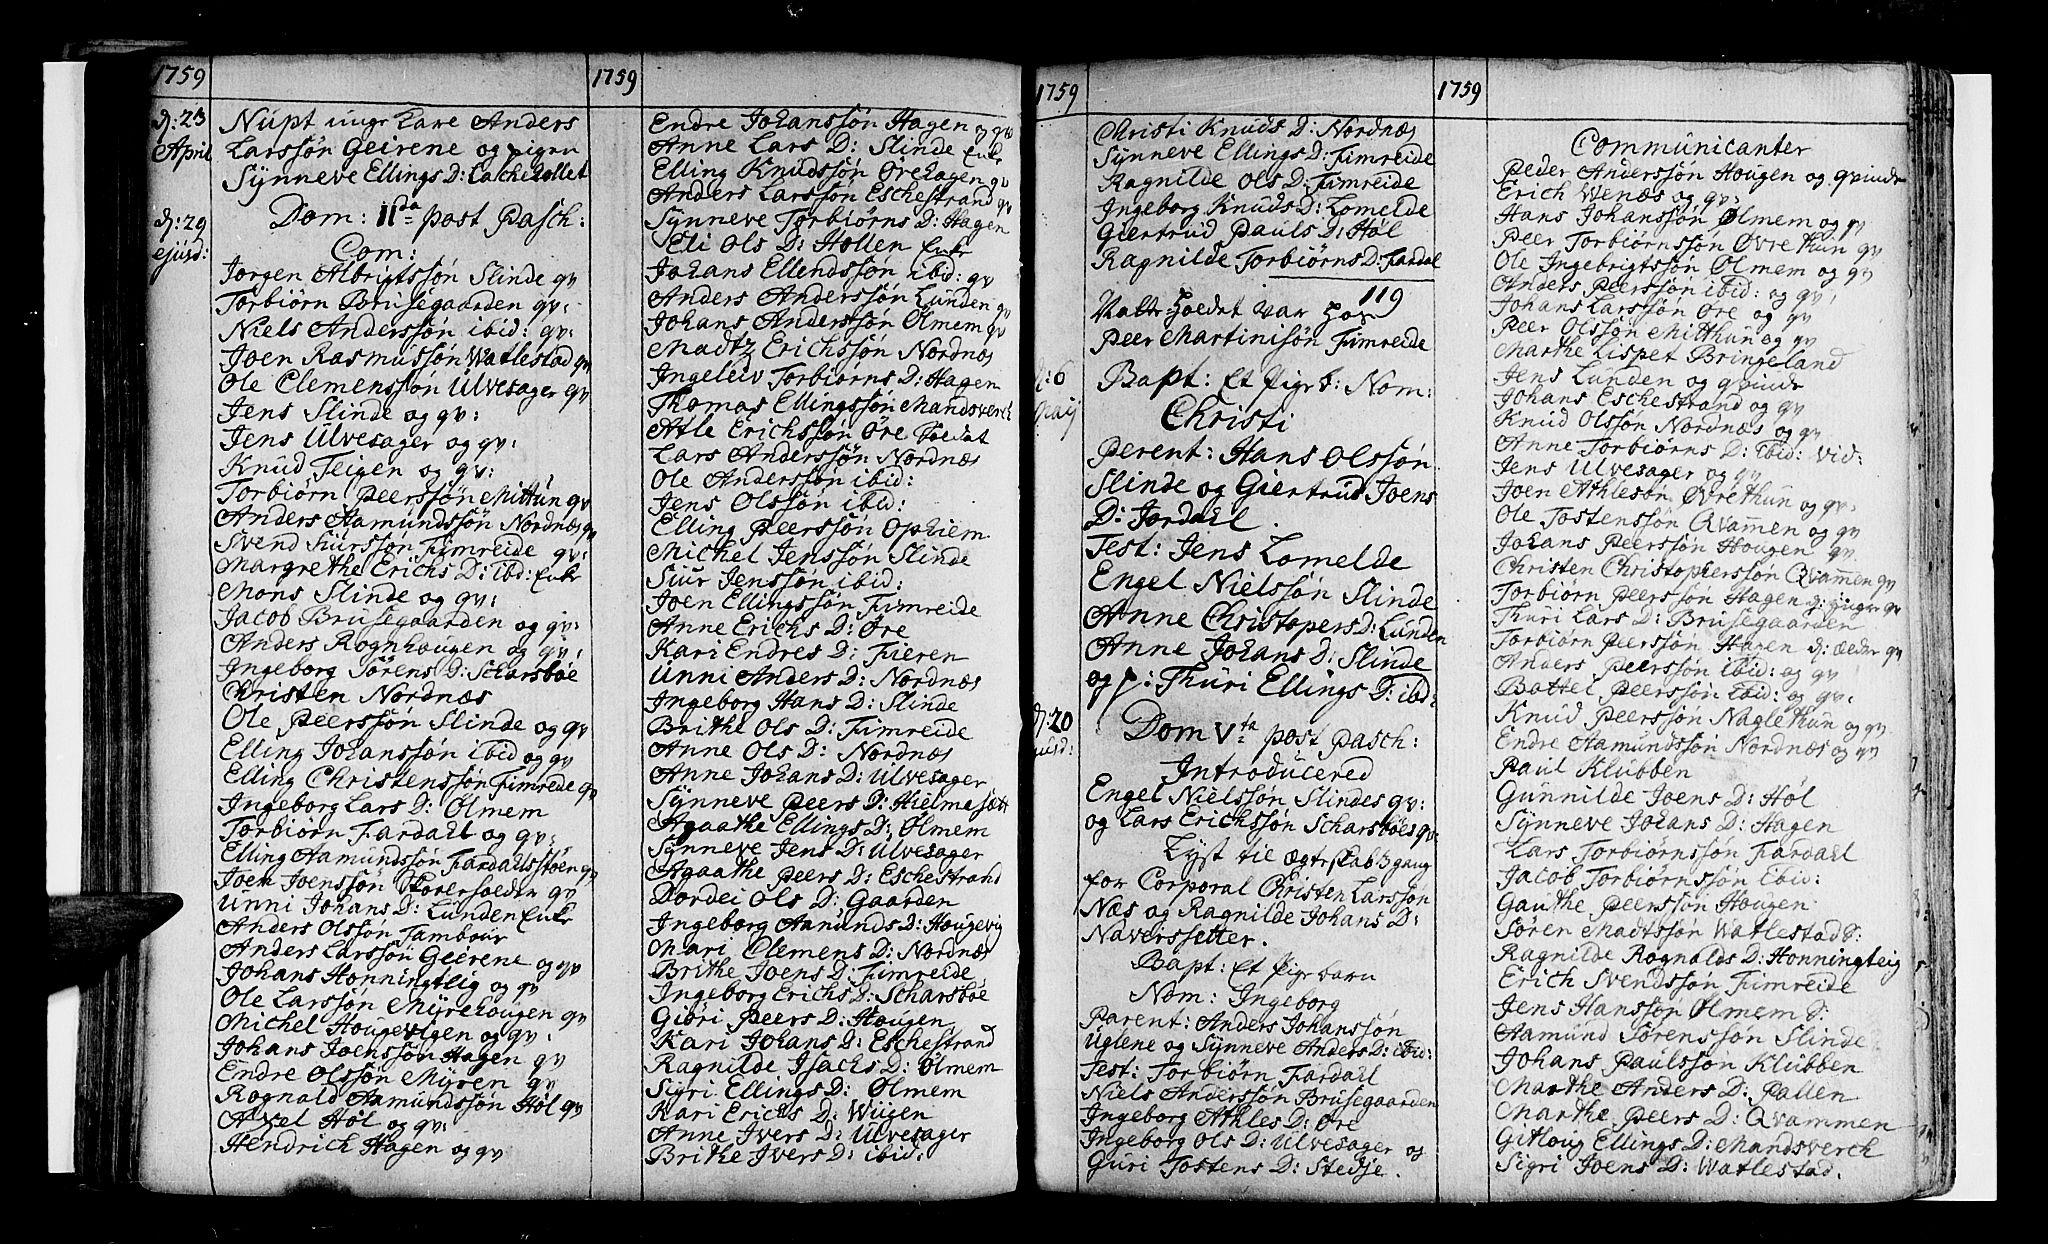 1759
d: 23 April
Nupt ungr Kare Anders
Larssøn Geirene og pigen
Synneve Ellings D: Lachehollet
d: 29 ejusd:
Dom: II da post Pasch:
Com:
Jørgen Albrigtssøn Slinde qv
Torbiørn Brusegaarden qv:
Niels Anderssøn ibid: qv:
Joen Rasmussøn Watlestad qv
Ole Clemenssøn Ulvesager qv
Jens Slinde og qv:
Jens Ulvesager og qv:
Knud Teigen og qv:
Torbiørn Peerssøn Mitthun qv
Anders Aamundssøn Nordnæs qv
Svend Siurssøn Fimreide qv:
Margrethe Erichs D: ibd: Enkr
Mons Slinde og qv:
Jacob Brusegaarden og qv:
Anders Rognhougen og qv:
Ingeborg Sørens D: Scharsbøe
Christen Nordnæs
Ole Peerssøn Slinde og qv
Elling Johanssøn ibid og qv
Elling Christenssøn Fimreide qv
Ingeborg Lars D: Ølmem
Torbiørn Fardahl og qv:
Elling Aamundssøn Fardahlstøen qv
Joen Joenssøn qv
Unni Johans D: Lunden Enkr
Anders Olssøn Tambour
Anders Larssøn Geerene og qv
Johans Honningteig og qv
Ole Larssøn Myrehougen qv
Michel Hougevigen og qv:
Johans Joenssøn Hagen qv
Endre Olssøn Myren qv
Rognald Aamundssøn Høl qv
Axel Høl og qv:
Hendrich Hagen og qv
1759
Endre Johanssøn Hagen og qv
Anne Lars D: Slinde Enkr
Elling Knudssøn Ørehagen qv
Anders Larssøn Eschestrand qv
Synneve Torbiørns D: Hagen
Eli Ols D: Hollen Enkr
Johans Ellendssøn ibid: qv
Anders Anderssøn Lunden qv
Johans Anderssøn Ølmem qv
Madtz Erichssøn Nordnæs
Ingeleiv Torbiørns D: Hagen
Thomas Ellingssøn Mandsverch
Atle Erichssøn Øre Soldat
Lars Anderssøn Nordnæs
Ole Anderssøn ibid:
Jens Olssøn ibid:
Elling Peerssøn Opheim
Michel Jenssøn Slinde
Siur Jenssøn ibid:
Joen Ellingssøn Fimreide
Anne Erichs D: Øre
Kari Endres D: Fieren
Unni Anders D: Nordnæs
Ingeborg Hans D: Slinde
Brithe Ols D: Fimreide
Anne Ols D: Nordnæs
Anne Johans D: Ulvesager
Synneve Peers D: Hielmesætt
Agaathe Ellings D: Ølmem
Synneve Jens D: Ulvesager
Agaathe Peers D: Eschestrand
Dordei Ols D: Gaarden
Ingeborg Aamunds D: Hougevig
Mari Clemens D: Nordnæs
Brithe Joens D: Fimreide
Ingeborg Erichs D: Scharsbøe
Giøri Peers D: Hougen
Kari Johans D: Eschestrand
Ragnilde Isachs D: Ølmem
Sigri Ellings D: Ølmem
Kari Erichs D: Wiigen
Anne Ivers D: Ulvesager
Brithe Ivers D: ibid:
1759
Christi Knuds D: Nordnæs
Synneve Ellings D: Fimreide
Ragnilde Ols D: Fimreide
Ingeborg Knuds D: Lomelde
Giertrud Pauls D: Høl
Ragnilde Torbiørns D: Fardal
119
var hos
Peer Martinisøn Fimreide
d: 6 Maij
Bapt: Et Pigeb: Nom:
Christi
Perent: Hans Olssøn
Slinde og Giertrud Joens
D: Jordahl.
Test: Jens Lomelde
Engel Nielssøn Slinde
Anne Christopers D: Lunden
Anne Johans D: Slinde
og p: Thuri Ellings D: ibd:
d: 20 ejusd:
Dom V ta post Pasch:
Introducered
Engel Nielssøn Slindes qv:
og Lars Erichssøn Scharsbøes qv
Lyst til ægteskab 3 gang
for Corporal Christen Larssøn
Næs og Ragnilde Johans D:
Naverssetter.
Bapt: Et Pigebarn
Nom: Ingeborg
Parent: Anders Johanssøn
Uglene og Synneve Anders D: ibid:
Test: Torbiørn Fardahl
Niels Anderssøn Brusegaarden
Ingeborg Athles D: Øre
Ingeborg Ols D: Ulvesager og
Guri Tostens D: Stedje.
1759
Communicanter
Peder Anderssøn Hougen og qvinde
Erich Wenæs og qv:
Hans Johanssøn Ølmem og qv
Peer Torbiørnssøn Øvrethun qv
Ole Ingebrigtssøn Ølmem og qv
Anders Peerssøn ibid: og qv:
Johans Larssøn Øre og qv
Peer Olssøn Mitthun og qv
Marthe Lispet Bringeland
Jens Lunden og qvinde
Johans Eschestrand og qv
Knud Olssøn Nordnæs og qv
Anne Torbiørns D: Ibid: Vid:
Jens Ulvesager og qv
Joen Athlesøn Øvrethun og qv:
Ole Tostenssøn Qvamen og qv
Johans Peerssøn Hougen qv
Christen Christopherssøn Qvammen qv
Torbiørn Peerssøn Hagen d: yngr qv
Thuri Lars D: Brusegaarden
Torbiørn Peerssøn Hagen d: ælder qv
Anders Peerssøn Ibid: og qv
Battel Peerssøn Ibid: og qv:
Knud Peerssøn Naglethun og qv
Endre Aamundssøn Nordnæs og qv
Paul Klubben
Gunnilde Joens D: Høl
Synneve Johans D: Hagen
Lars Torbiørnssøn Fardahl
Jacob Torbiørnssøn Ibid:
Gauthe Peerssøn Hougen
Søren Madtssøn Watlestad S:
Ragnilde Rognalds D: Honningteig
Erich Svendssøn Fimreide
Jens Hanssøn Ølmem S:
Aamund Sørenssøn Slinde
Johans Paulssøn Klubben
Marthe Anders D: Pallen
Marthe Peers D: Qvammen
Gitloug Ellings D: Mandsverch
Sigri Joens D: Watlestad.